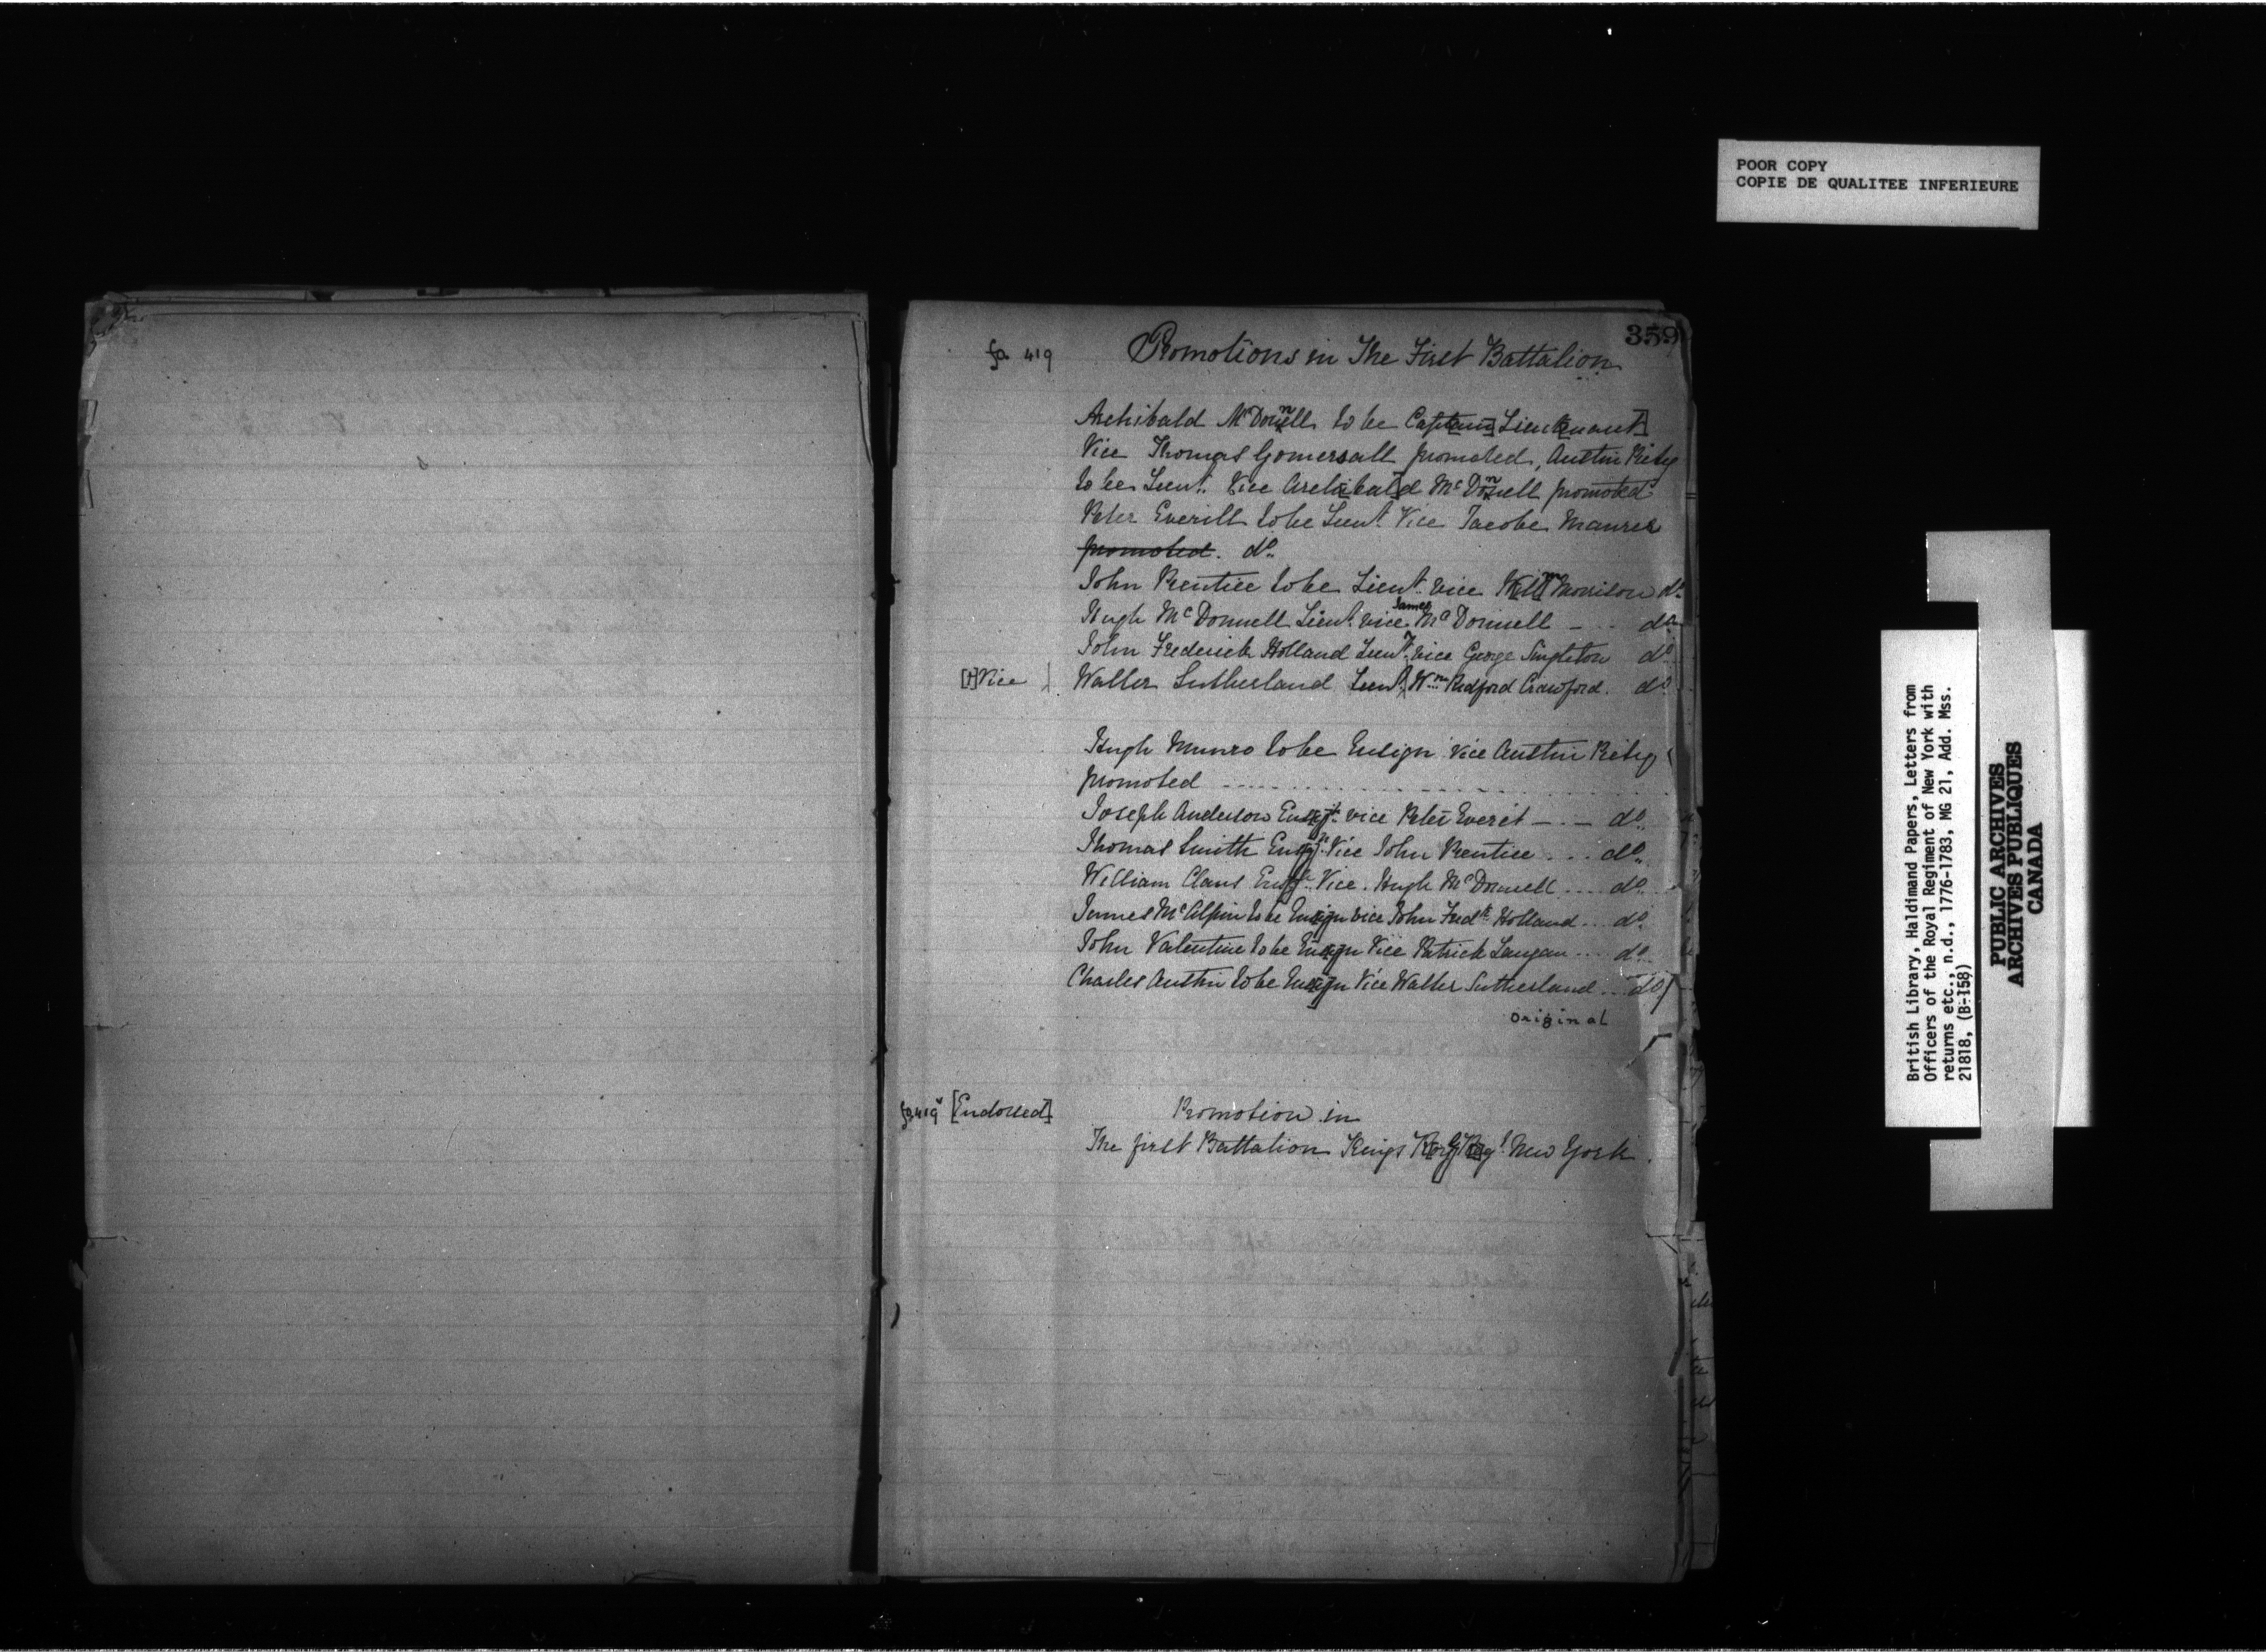 POOR COPY
COPIE DE QUALITEE INFERIEURE
359
fo 419
Promotions in The First Battalion
Archibald McDonnell to be Capt[ain] Lieut[enant]
Vice Thomas Gomersall promoted, Austin
to be Lieut. Vice Archibald McDonnell promoted
Peter Everitt to be Lieut. Vice Jacobe Maurer
promoted. do.
John Prentice to be Lieut. vice Morrison do.
Hugh McDonnell Lieut. vice James McDonnell - . . do.
John Frederick Holland Lieut. vice George Singleton do.
[+] Vice
Walter Sutherland Lieut. Wm. Redford Crawford. do.
Hugh Munro to be Ensign Vice Austin
promoted
Joseph Anderson Ensgn. vice Peter Everet -.- do.
Thomas Smith Ensgn. Vice John Prentice ... do.
William Claus Ensgn. Vice. Hugh McDonnell .... do.
James McAlpin to be Ensign vice John Fredk. Holland ... do.
John Valentine to be Ensign Vice Patrick Langan ... do.
Charles Austin to be Ensign Vice Walter Sutherland ... do.
Original
fo 419v [Endorsed]
Promotion in
The first Battalion Kings R[oyal] Regt. New York.
British Library, Haldimand Papers, Letters from
Officers of the Royal Regiment of New York with
returns etc., n.d., 1776-1783, MG 21, Add. Mss.
21818, (B-158)
PUBLIC ARCHIVES
ARCHIVES PUBLIQUES
CANADA